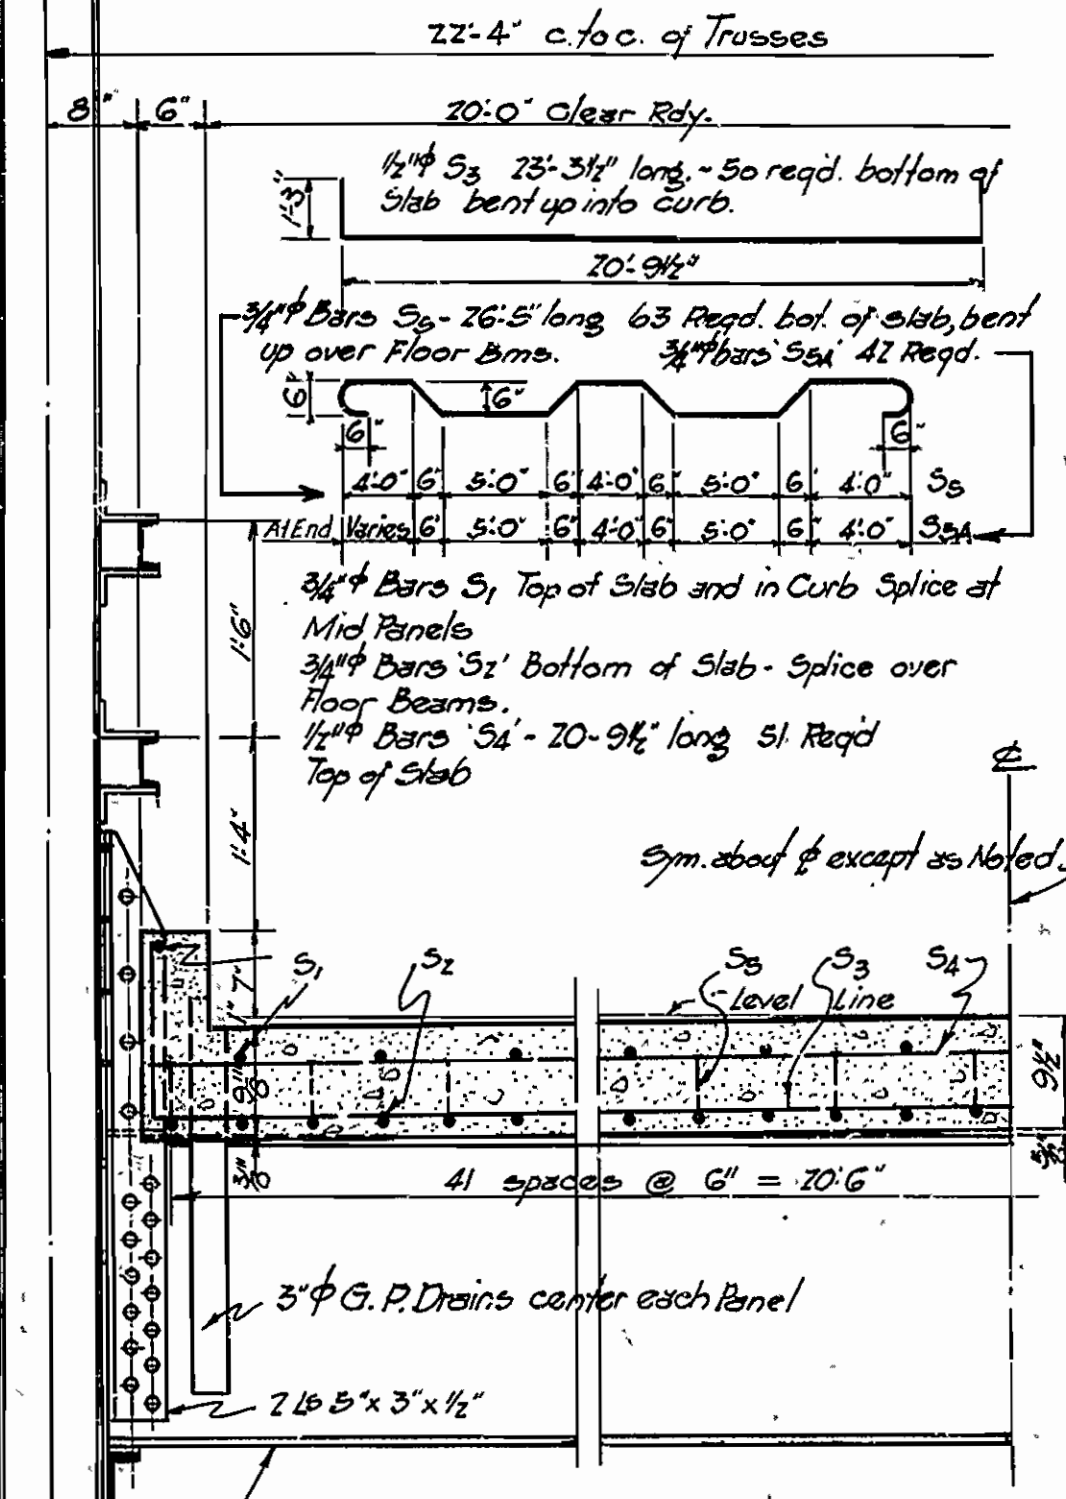 22'-4" c. to c. of Trusses
8" 6" 20'-0" Clear Rdy.
1/2"ϕ S3 23'-3 1/2" long. - 50 reqd. bottom of
Slab bent up into curb.
1'-3"
20'-9 1/2"
3/4"ϕ Bars S5 - 26'-5" long 63 Reqd. bot. of slab, bent
up over Floor Bms. 3/4"ϕ bars 'S5A' 42 Reqd.
6" 6"
6" 6"
4'-0" 6" 5'-0" 6" 4'-0" 6" 5'-0" 6" 4'-0" S5
At End Varies 6" 5'-0" 6" 4'-0" 6" 5'-0" 6" 4'-0" S5A
3/4"ϕ Bars S1 Top of Slab and in Curb Splice at
Mid Panels
3/4"ϕ Bars 'S2' Bottom of Slab - Splice over
Floor Beams.
1/2"ϕ Bars 'S4' - 20-9 1/2" long 51 Reqd
Top of Slab
1'-6"
1'-4"
℄
Sym. about ℄ except as Noted.
S1 S2 S5 S3 S4
Level Line
1" 7"
9 1/2"
41 spaces @ 6" = 20'-6"
3"ϕ G.P. Drains center each Panel
2 Ls 5" x 3" x 1/2"